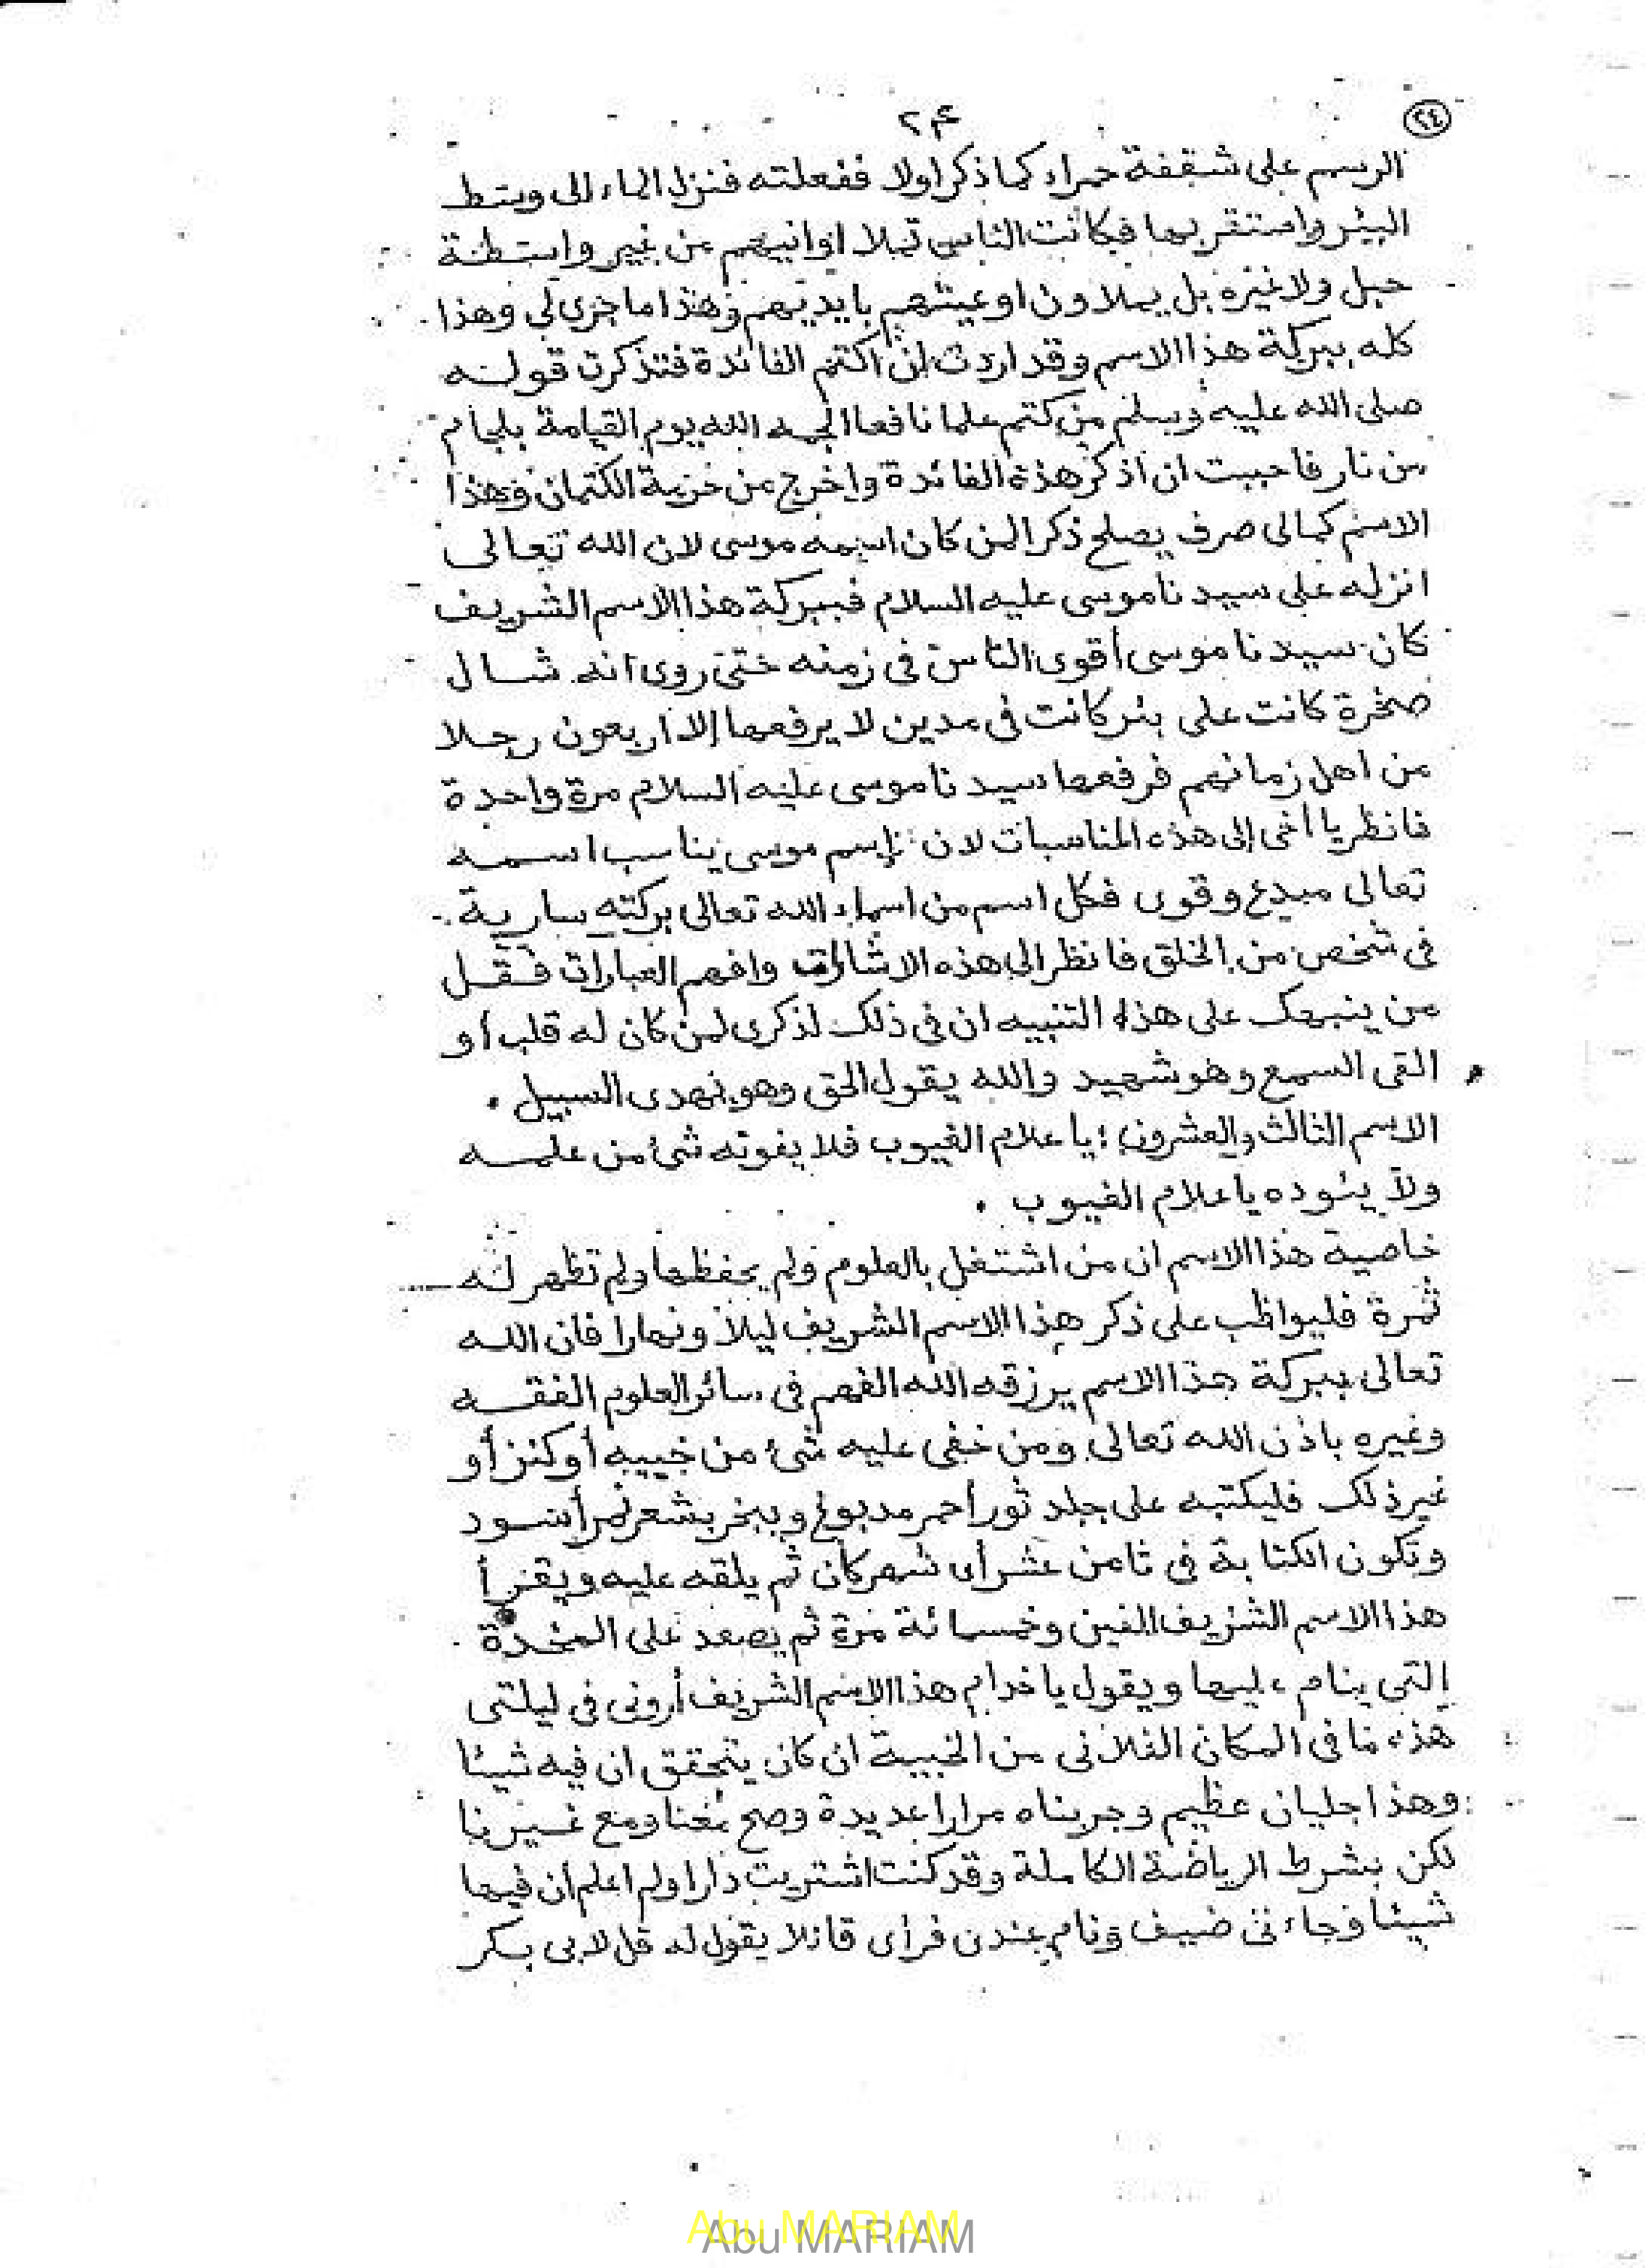 ٢٤
٢٤
الرسم على شقفة حمراء كما ذكر اولا ففعلته فنزل الماء الى وسط
البئر واستقر بها فكانت الناس تملا اوانيهم من غير واسطة
حبل ولا غيره بل يملاون اوعيتهم بايديهم وهذا ما جرى لى وهذا
كله ببركة هذا الاسم وقد اردت ان اكتم الفائدة فتذكرت قوله
صلى الله عليه وسلم من كتم علما نافعا الجمه الله يوم القيامة بلجام
من نار فاحببت ان اذكر هذه الفائدة واخرج من خزية الكتمان وهذا
الاسم كمالى صرف يصلح ذكرا لمن كان اسمه موسى لان الله تعالى
انزله على سيدنا موسى عليه السلام فببركة هذا الاسم الشريف
كان سيدنا موسى أقوى الناس فى زمنه حتى روى انه شال
صخرة كانت على بئر كانت فى مدين لا يرفعها إلا اربعون رجلا
من اهل زمانهم فرفعها سيدنا موسى عليه السلام مرة واحدة
فانظر يا أخى إلى هذه المناسبات لان إسم موسى يناسب اسمه
تعالى مبدع وقوى فكل اسم من اسماء الله تعالى بركته سارية
فى شخص من الخلق فانظر الى هذه الاشارات وافهم العبارات فقل
من ينبهك على هذا التنبيه ان فى ذلك لذكرى لمن كان له قلب أو
القى السمع وهو شهيد والله يقول الحق وهو يهدى السبيل .
الاسم الثالث والعشرون : يا علام الغيوب فلا يفوته شئ من علمه
ولا يئوده يا علام الغيوب .
خاصية هذا الاسم ان من اشتغل بالعلوم ولم يحفظها ولم تظهر له
ثمرة فليواظب على ذكر هذا الاسم الشريف ليلا ونهارا فان الله
تعالى ببركة هذا الاسم يرزقه الله الفهم فى سائر العلوم الفقه
وغيره باذن الله تعالى ومن خفى عليه شئ من خبيه أو كنز أو
غير ذلك فليكتبه على جلد ثور أحمر مدبوغ ويبخر بشعر نمر أسود
وتكون الكتابة فى ثامن عشر أى شهر كان ثم يلقه عليه ويقرأ
هذا الاسم الشريف الفين وخمسمائة مرة ثم يصعد على المخدة
التى ينام عليها ويقول يا خدام هذا الاسم الشريف أرونى فى ليلتى
هذه ما فى المكان الفلانى من الخبية ان كان يتحقق ان فيه شيئا
وهذا جليان عظيم وجربناه مرارا عديدة وصح معنا ومع غيرنا
لكن بشرط الرياضة الكاملة وقد كنت اشتريت دارا ولم اعلم ان فيها
شيئا وجاءنى ضيف ونام عندى فرأى قائلا يقول له قل لابى بكر
Abu MARIAM